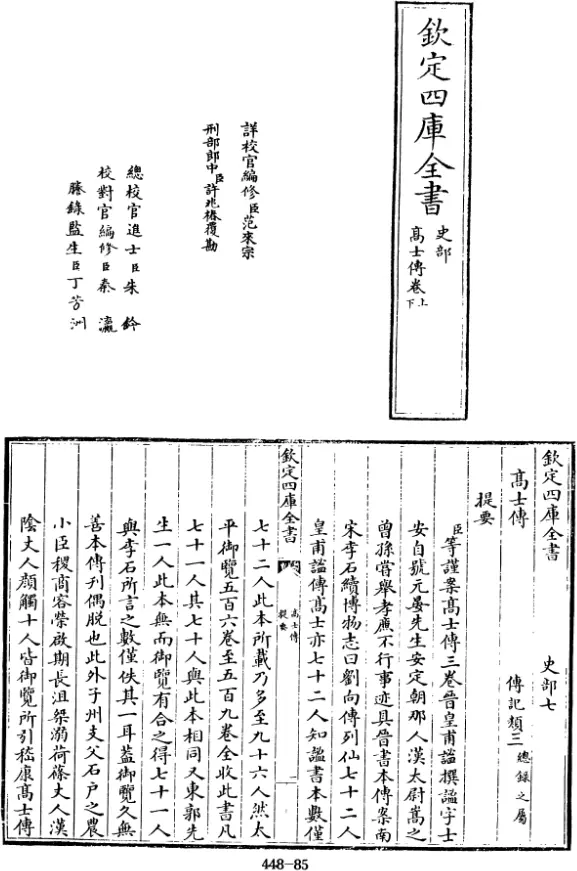 欽定四庫全書
史部
高士傳卷上
下
詳校官編修臣范來宗
刑部郎中臣許兆椿覆勘
總校官進士臣朱鈐
校對官編修臣秦瀛
謄錄監生臣丁芳洲
欽定四庫全書
史部七
高士傳
傳記類三
總錄之屬
提要
臣等謹案高士傳三卷晉皇甫謐撰謐字士
安自號元晏先生安定朝那人漢太尉嵩之
曾孫嘗舉孝廉不行事迹具晉書本傳案南
宋李石續博物志曰劉向傳列仙七十二人
皇甫謐傳高士亦七十二人知謐書本數僅
欽定四庫全書
高士傳
提要
一
七十二人此本所載乃多至九十六人然太
平御覽五百六卷至五百九卷全收此書凡
七十一人其七十人與此本相同又東郭先
生一人此本無而御覽有合之得七十一人
與李石所言之數僅佚其一耳蓋御覽久無
善本傳刊偶脱也此外子州支父石戶之農
小臣稷商容榮啟期長沮桀溺荷蓧丈人漢
陰丈人顏觸十人皆御覽所引嵇康高士傳
448-85